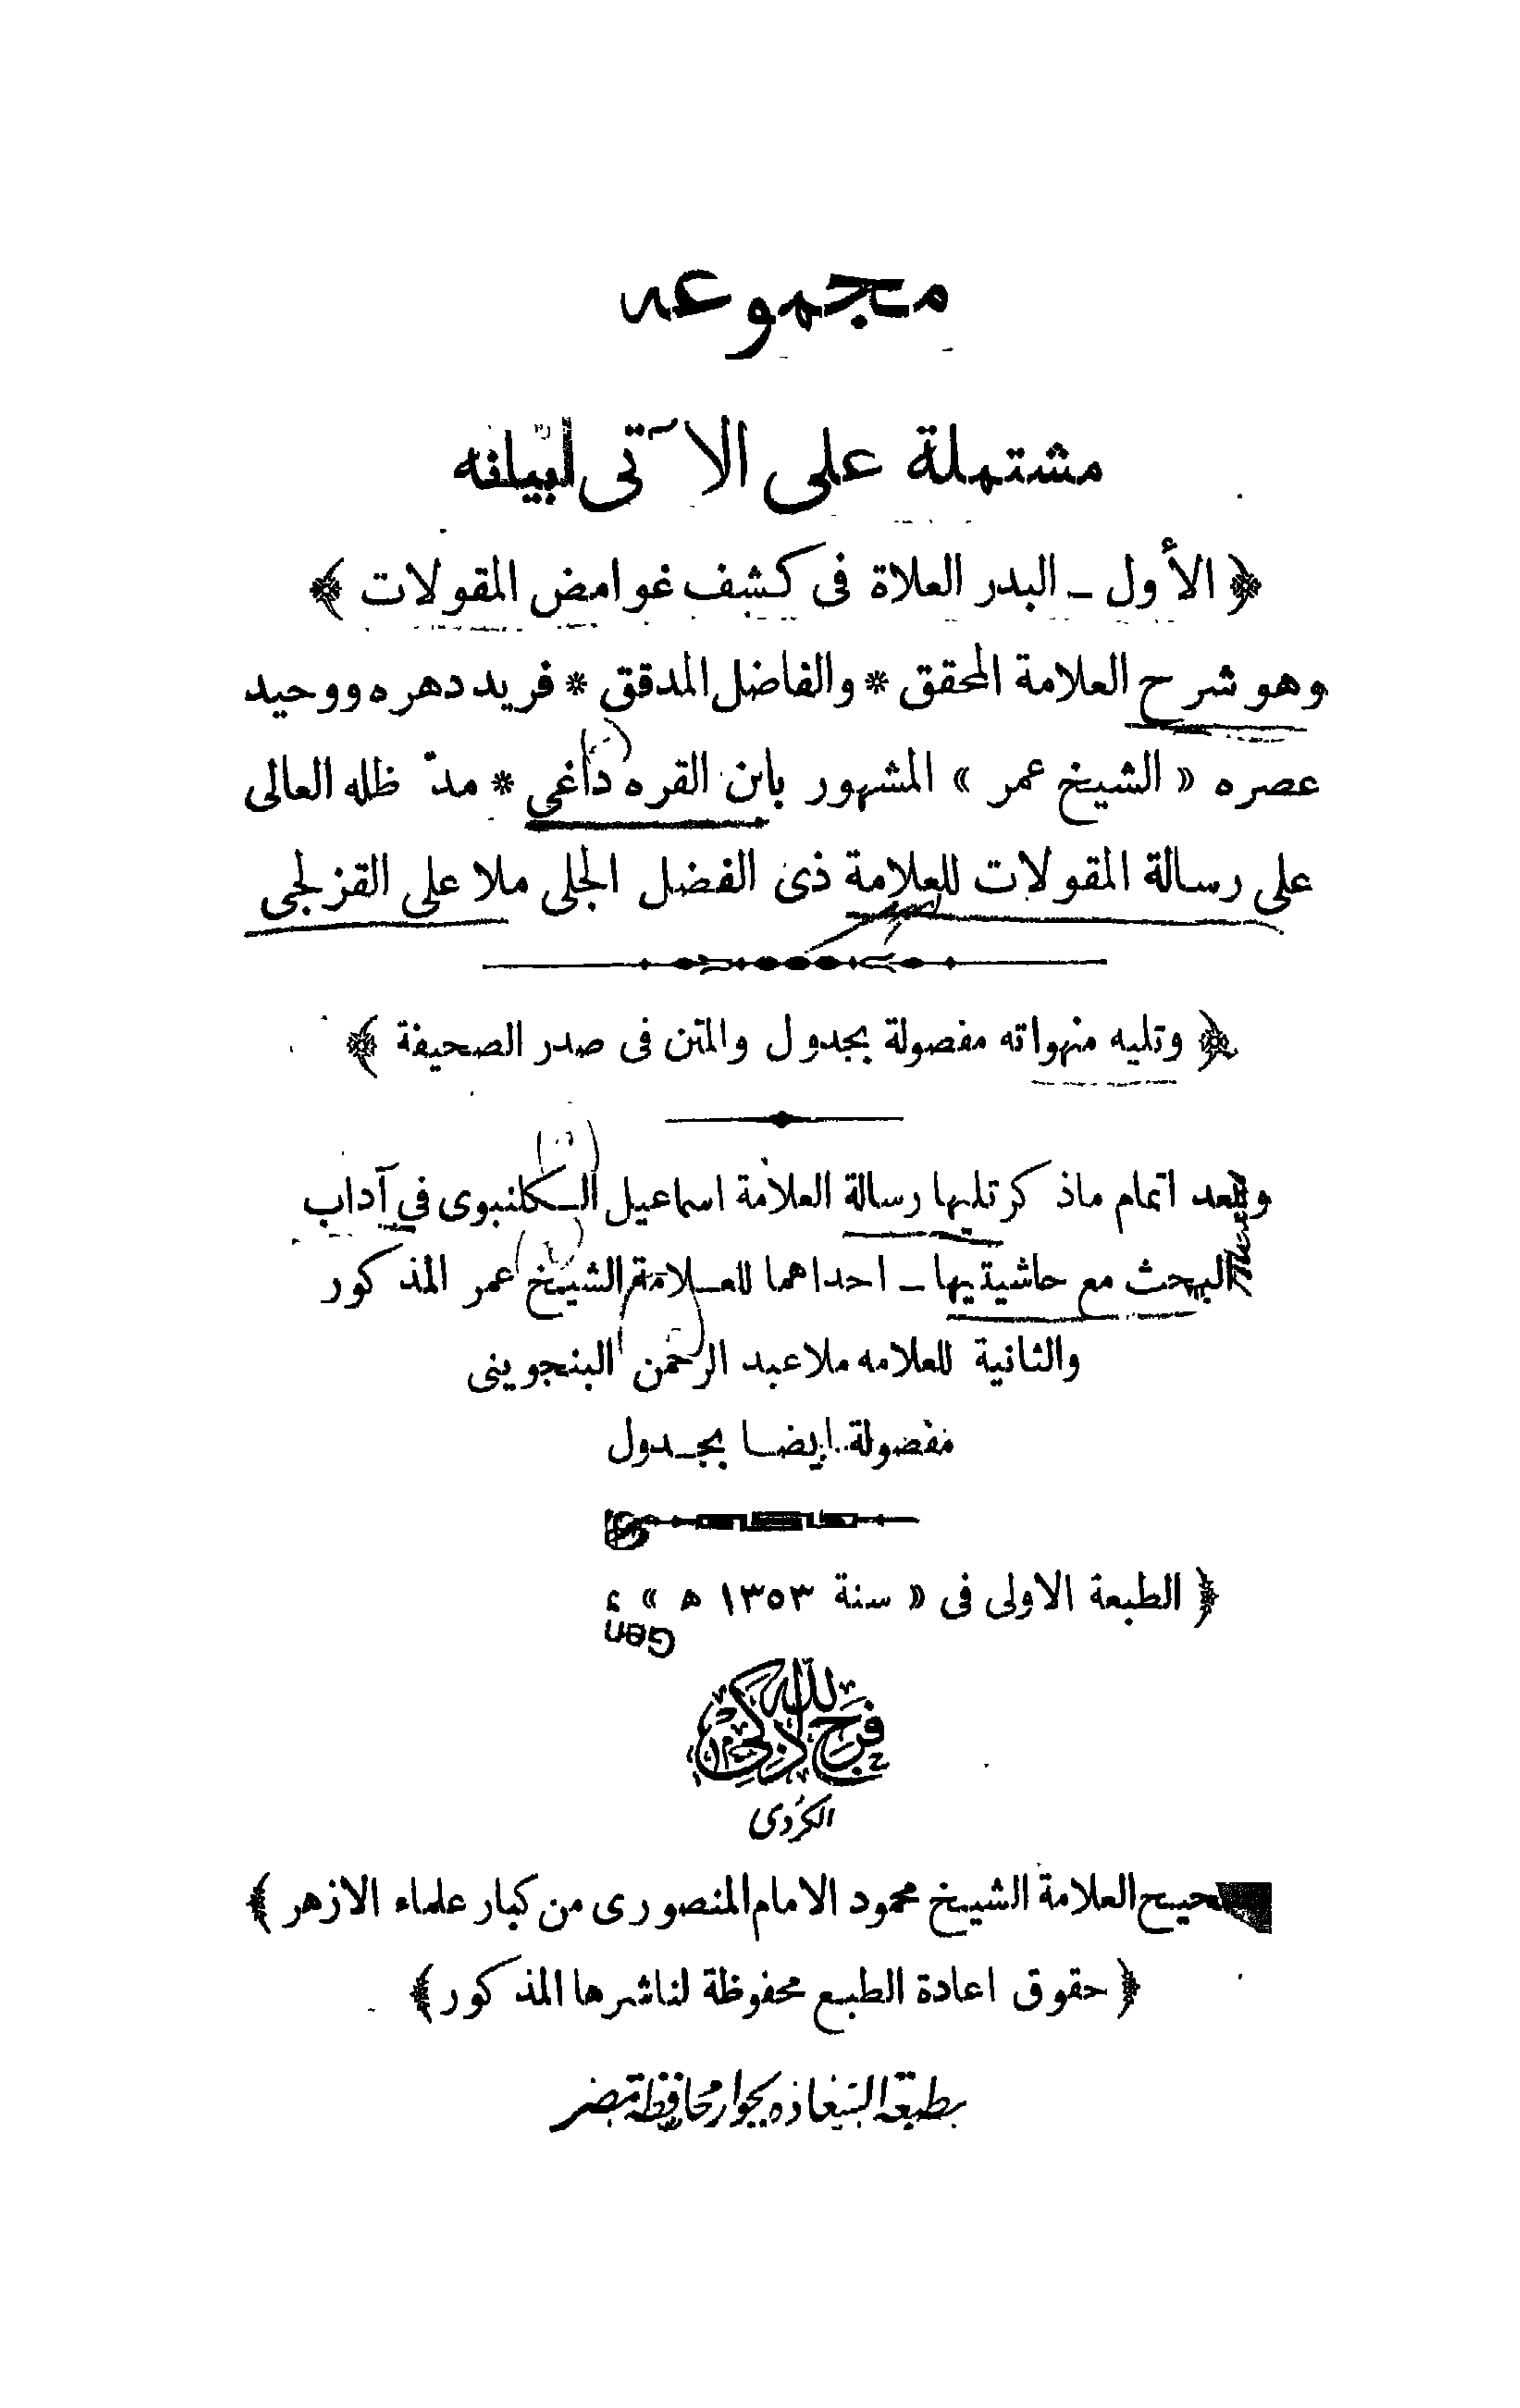 مجموعه
مشتملة على الآتى لبيانه
﴿ الأول ـ البدر العلاة فى كشف غوامض المقولات ﴾
وهو شرح العلامة المحقق * والفاضل المدقق * فريد دهره ووحيد
عصره « الشيخ عمر » المشهور بابن القره داغي * مدّ ظله العالى
على رسالة المقولات للعلامة ذى الفضل الجلى ملا على القزلجى
﴿ وتليه منهواته مفصولة بجدول والمتن فى صدر الصحيفة ﴾
وبعد اتمام ماذكر تليها رسالة العلامة اسماعيل الكلنبوى في آداب
البحث مع حاشيتيها ـ احداهما للعلامة الشيخ عمر المذكور
والثانية للعلامه ملا عبد الرحمن البنجوينى
مفصولة ايضا بجدول
﴿ الطبعة الاولى فى « سنة ١٣٥٣ ه »
Gen
فرج الله زكى
الكردى
العلامة الشيخ محمود الامام المنصورى من كبار علماء الازهر ﴾
﴿ حقوق اعادة الطبع محفوظة لناشرها المذكور ﴾
بجوار محافظة مصر